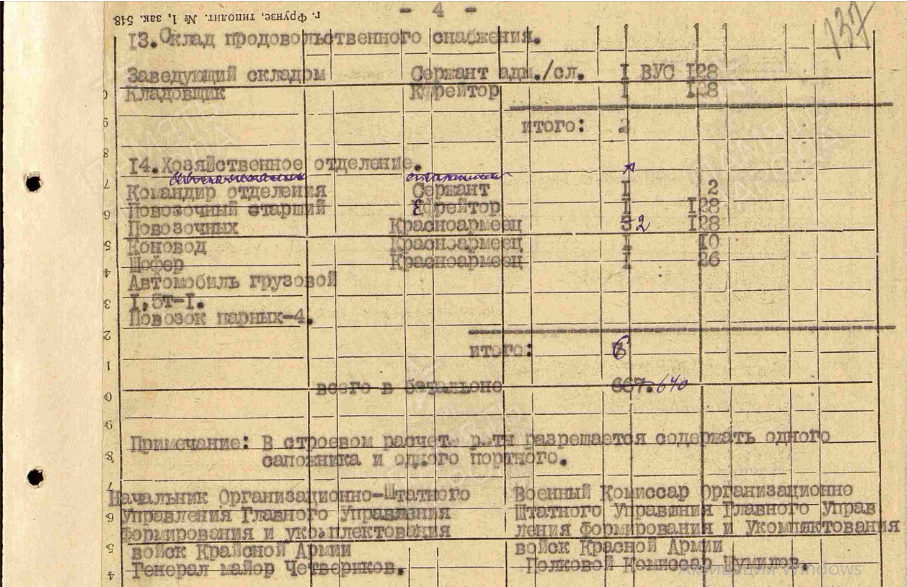 г. Фрунзе, типолит. № 1, зак. 548
- 4 -
137
13. Склад продовольственного снабжения.
Заведующий складом Сержант адм./сл. I ВУС I28
Кладовщик Ефрейтор I I28
итого: 2
14. Хозяйственное отделение.
Командир отделения Сержант I 2
Повозочный старший Ефрейтор I I28
Повозочных Красноармеец 3 2 I28
Коновод Красноармеец I 10
Шофер Красноармеец I 26
Автомобиль грузовой
I,5т-I.
Повозок парных-4.
итого: 6
всего в батальоне 667. 640
Примечание: В строевом расчете роты разрешается содержать одного
сапожника и одного портного.
Начальник Организационно-Штатного
Управления Главного Управления
формирования и укомплектования
войск Крайсной Армии
Генерал майор Четвериков.
Военный Комиссар Организационно
Штатного Управления Главного Управ
ления формирования и Укомплектования
войск Красной Армии
Полковой Комиссар Шумилов.
0
9
8
7
6
5
4
3
2
1
0
9
8
7
6
5
4
Windows